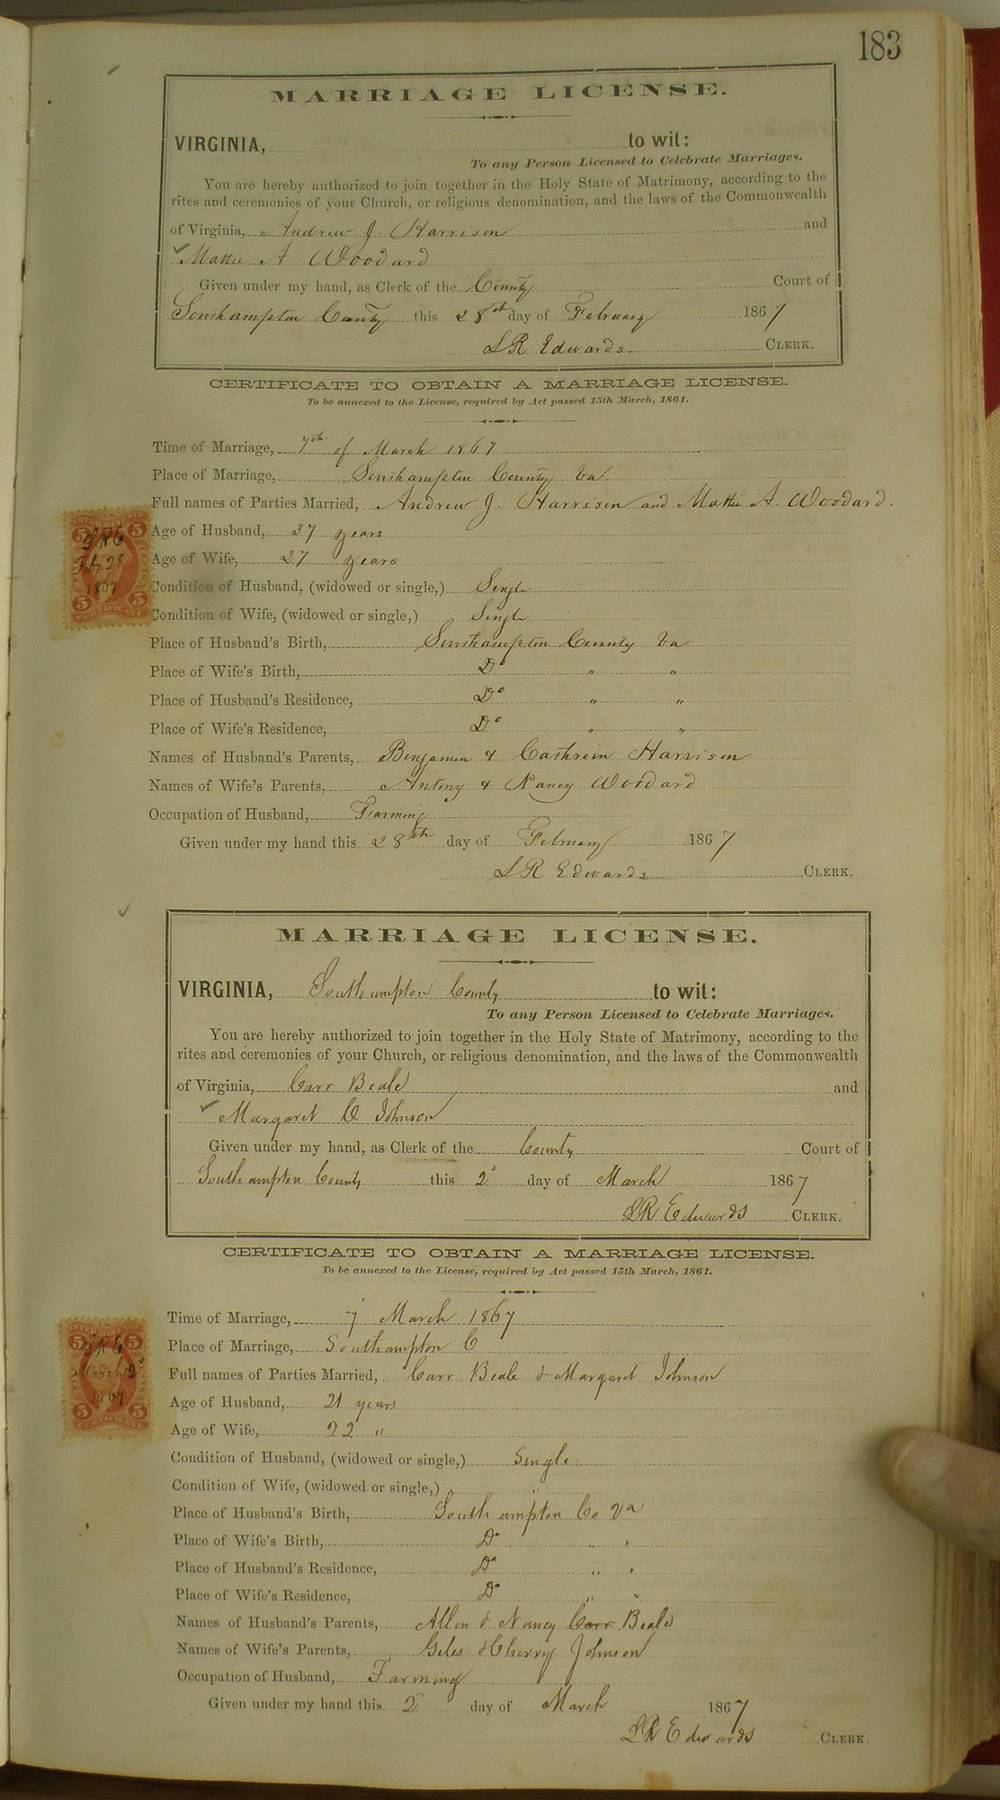 183
MARRIAGE LICENSE.
VIRGINIA, to wit:
To any Person Licensed to Celebrate Marriages.
You are hereby authorized to join together in the Holy State of Matrimony, according to the
rites and ceremonies of your Church, or religious denomination, and the laws of the Commonwealth
of Virginia, Andrew J. Harrison and
Mattie A Woodard
Given under my hand, as Clerk of the County Court of
Southampton County this 28th day of February 1867
LR Edwards. CLERK.
CERTIFICATE TO OBTAIN A MARRIAGE LICENSE.
To be annexed to the License, required by Act passed 15th March, 1861.
Time of Marriage, 7th of March 1867
Place of Marriage, Southampton County Va
Full names of Parties Married, Andrew J. Harrison and Mattie A. Woodard.
Age of Husband, 37 years
Age of Wife, 27 years
Condition of Husband, (widowed or single,) Single
Condition of Wife, (widowed or single,) Single
Place of Husband's Birth, Southampton County Va
Place of Wife's Birth, Do " "
Place of Husband's Residence, Do " "
Place of Wife's Residence, Do " "
Names of Husband's Parents, Benjamin & Cathrein Harrison
Names of Wife's Parents, Antony & Nancy Woodard
Occupation of Husband, Farming
Given under my hand this 28th day of February 1867
LR Edwards CLERK.
5 5
1867
5 5
CERTIFICATE
MARRIAGE LICENSE.
VIRGINIA, Southampton County to wit:
To any Person Licensed to Celebrate Marriages.
You are hereby authorized to join together in the Holy State of Matrimony, according to the
rites and ceremonies of your Church, or religious denomination, and the laws of the Commonwealth
of Virginia, Carr Beale and
Margaret C Johnson
Given under my hand, as Clerk of the County Court of
Southampton County this 2d day of March 1867
LR Edwards CLERK.
CERTIFICATE TO OBTAIN A MARRIAGE LICENSE.
To be annexed to the License, required by Act passed 15th March, 1861.
Time of Marriage, 7 March 1867
Place of Marriage, Southampton C
Full names of Parties Married, Carr Beale & Margaret Johnson
Age of Husband, 21 years
Age of Wife, 22 "
Condition of Husband, (widowed or single,) Single
Condition of Wife, (widowed or single,) "
Place of Husband's Birth, Southampton Co Va
Place of Wife's Birth, Do " "
Place of Husband's Residence, Do " "
Place of Wife's Residence, Do " "
Names of Husband's Parents, Allen & Nancy Carr Beale
Names of Wife's Parents, Giles & Cherry Johnson
Occupation of Husband, Farming
Given under my hand this 2d day of March 1867
LR Edwards CLERK.
5 5
March 2
1867
5 5
CERTIFICATE